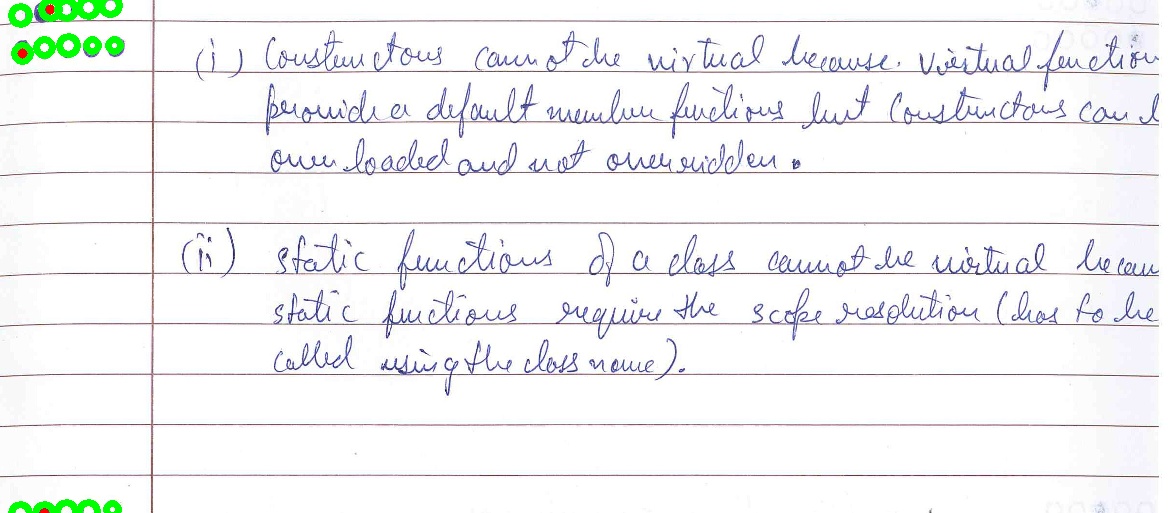 (i) Constructors cannot be virtual because. Virtual function
provide a default member functions but Constructors can
overloaded and not overridden.
(ii) static functions of a class cannot be virtual becau
static functions require the scope resolution (has to be
called using the class name).